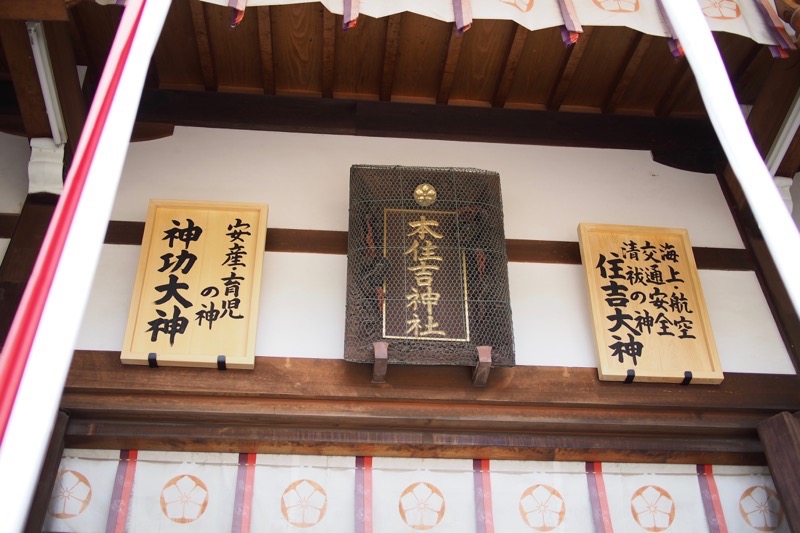 安産・育児
の神
神功大神
本住吉神社
海上・航空
交通安全
清祓の神
住吉大神